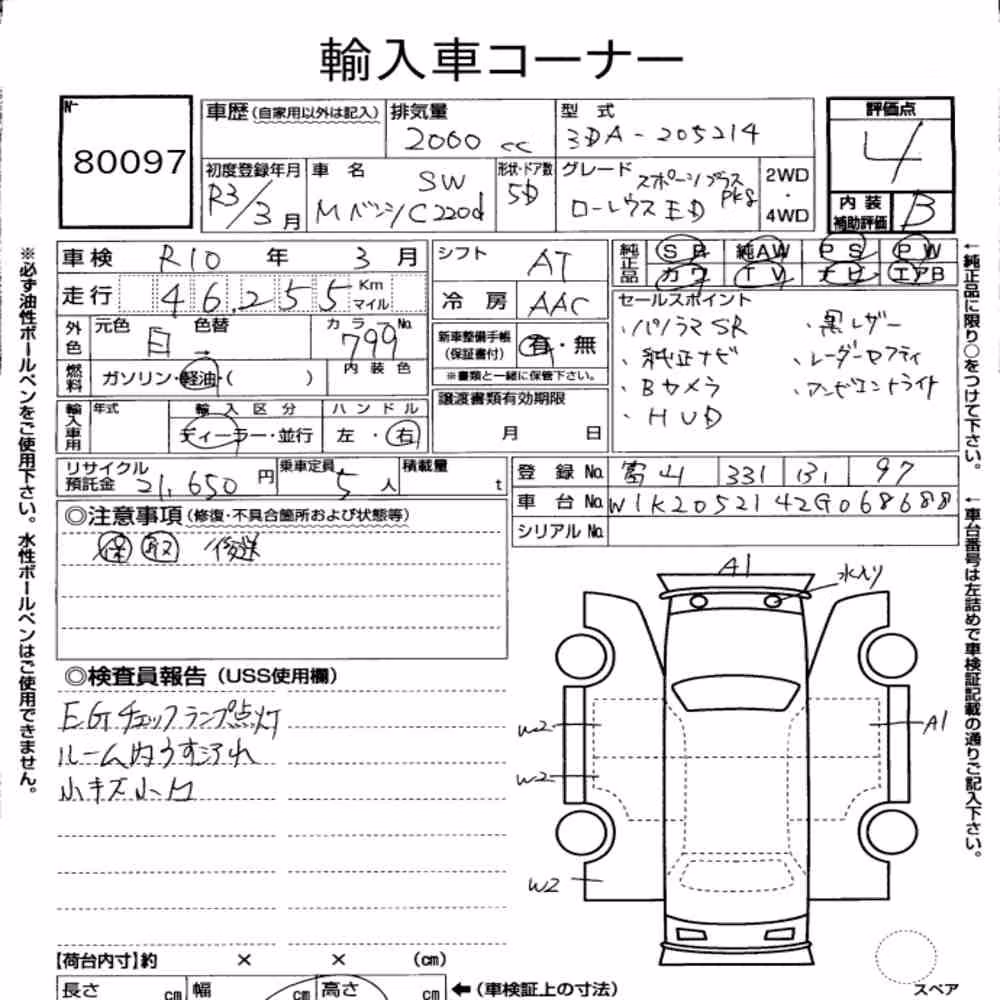 輸入車コーナー
№
80097
車歴(自家用以外は記入)
排気量
2000 cc
型式
3DA-205214
評価点
4
初度登録年月
R3/3月
車名
SW
Mベンツ C220d
形状・ドア数
5D
グレード
スポーツプラスPKG
ローレウスED
2WD
・
4WD
内装
補助評価
B
車検 R10年 3月
シフト AT
純正品
SR 純AW PS PW
カワ TV ナビ エアB
走行 46,255 Km
マイル
冷房 AAC
セールスポイント
・パノラマSR ・黒レザー
・純正ナビ ・レーダーセフティ
・Bカメラ ・アンビエントライト
・HUD
外色
元色 白 → 色替
カラーNo.
799
新車整備手帳
(保証書付)
有・無
※書類と一緒に保管下さい。
燃料
ガソリン・軽油・( )
内装色
譲渡書類有効期限
月 日
輸入車用
年式
輸入区分
ディーラー・並行
ハンドル
左・右
リサイクル
預託金 21,650円
乗車定員 5人
積載量 t
登録No. 富山 331 ひ 97
車台No. W1K2052142G068688
シリアルNo.
◎注意事項(修復・不具合箇所および状態等)
保 取 後送
◎検査員報告(USS使用欄)
EGチェックランプ点灯
ルーム内うすヨゴレ
小キズ小凹
A1
水入り
W2
A1
W2
W2
スペア
【荷台内寸】約 × × (cm)
長さ cm
幅 cm
高さ cm
←(車検証上の寸法)
※必ず油性ボールペンをご使用下さい。水性ボールペンはご使用できません。
←純正品に限り○をつけて下さい。
←車台番号は左詰めで車検証記載の通りご記入下さい。